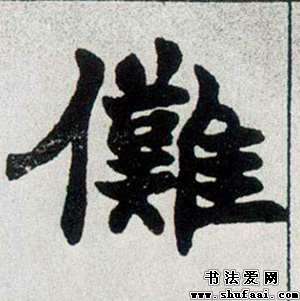 儺
书法爱网
www.shufaai.com